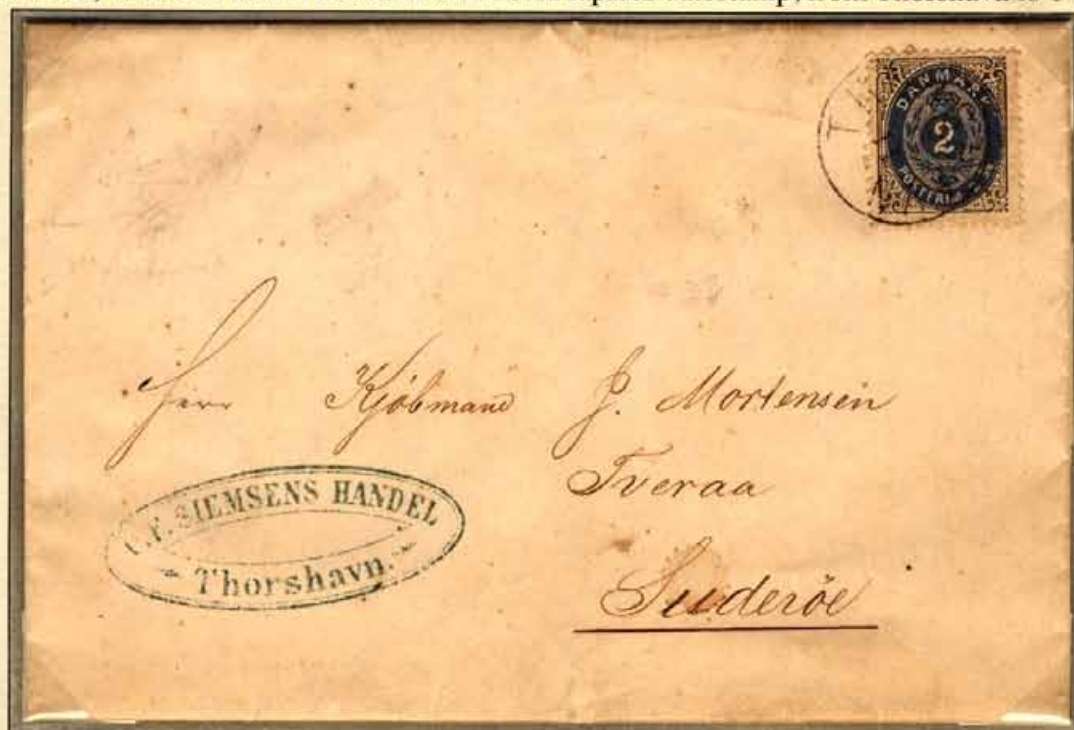 DANMARK
2
POSTFRIM
Herr Kjöbmand J. Mortensen
Tveraa
Suderöe
C.F. SIEMSENS HANDEL
Thorshavn.